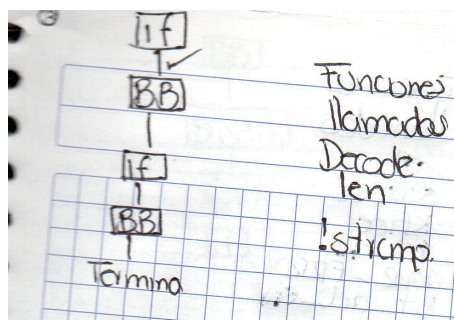 if
BB
if
BB
Termina
Funciones
llamadas
Decode.
len.
!strcmp.